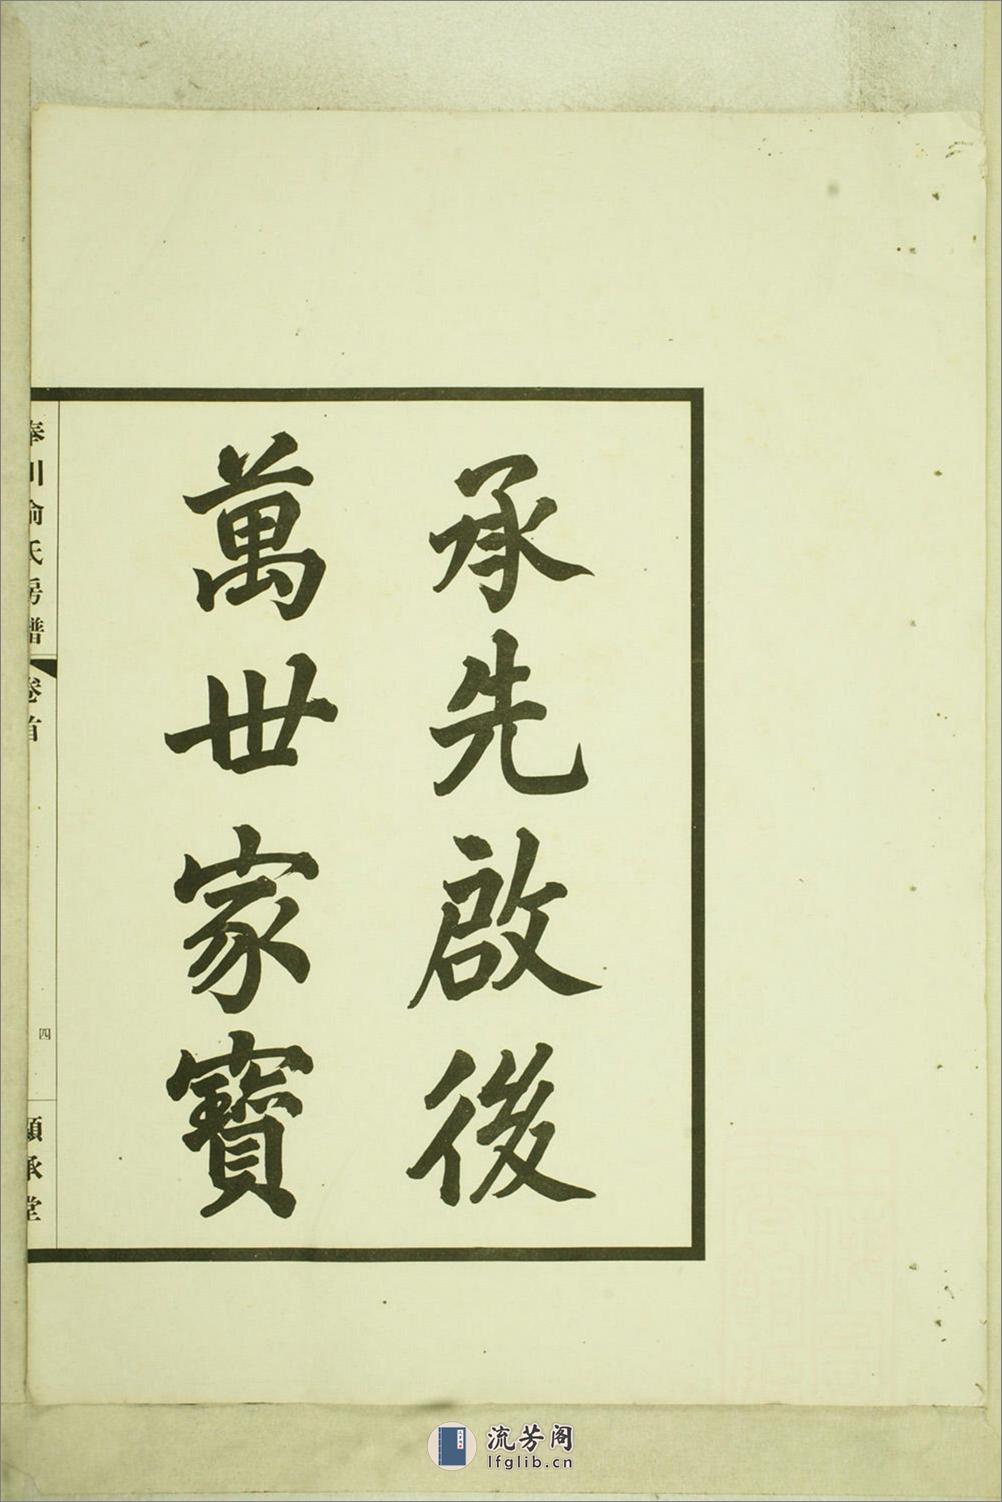 承先啟後
萬世家寶
奉川俞氏房譜
卷首
四
顯承堂
流芳阁
lfglib.cn